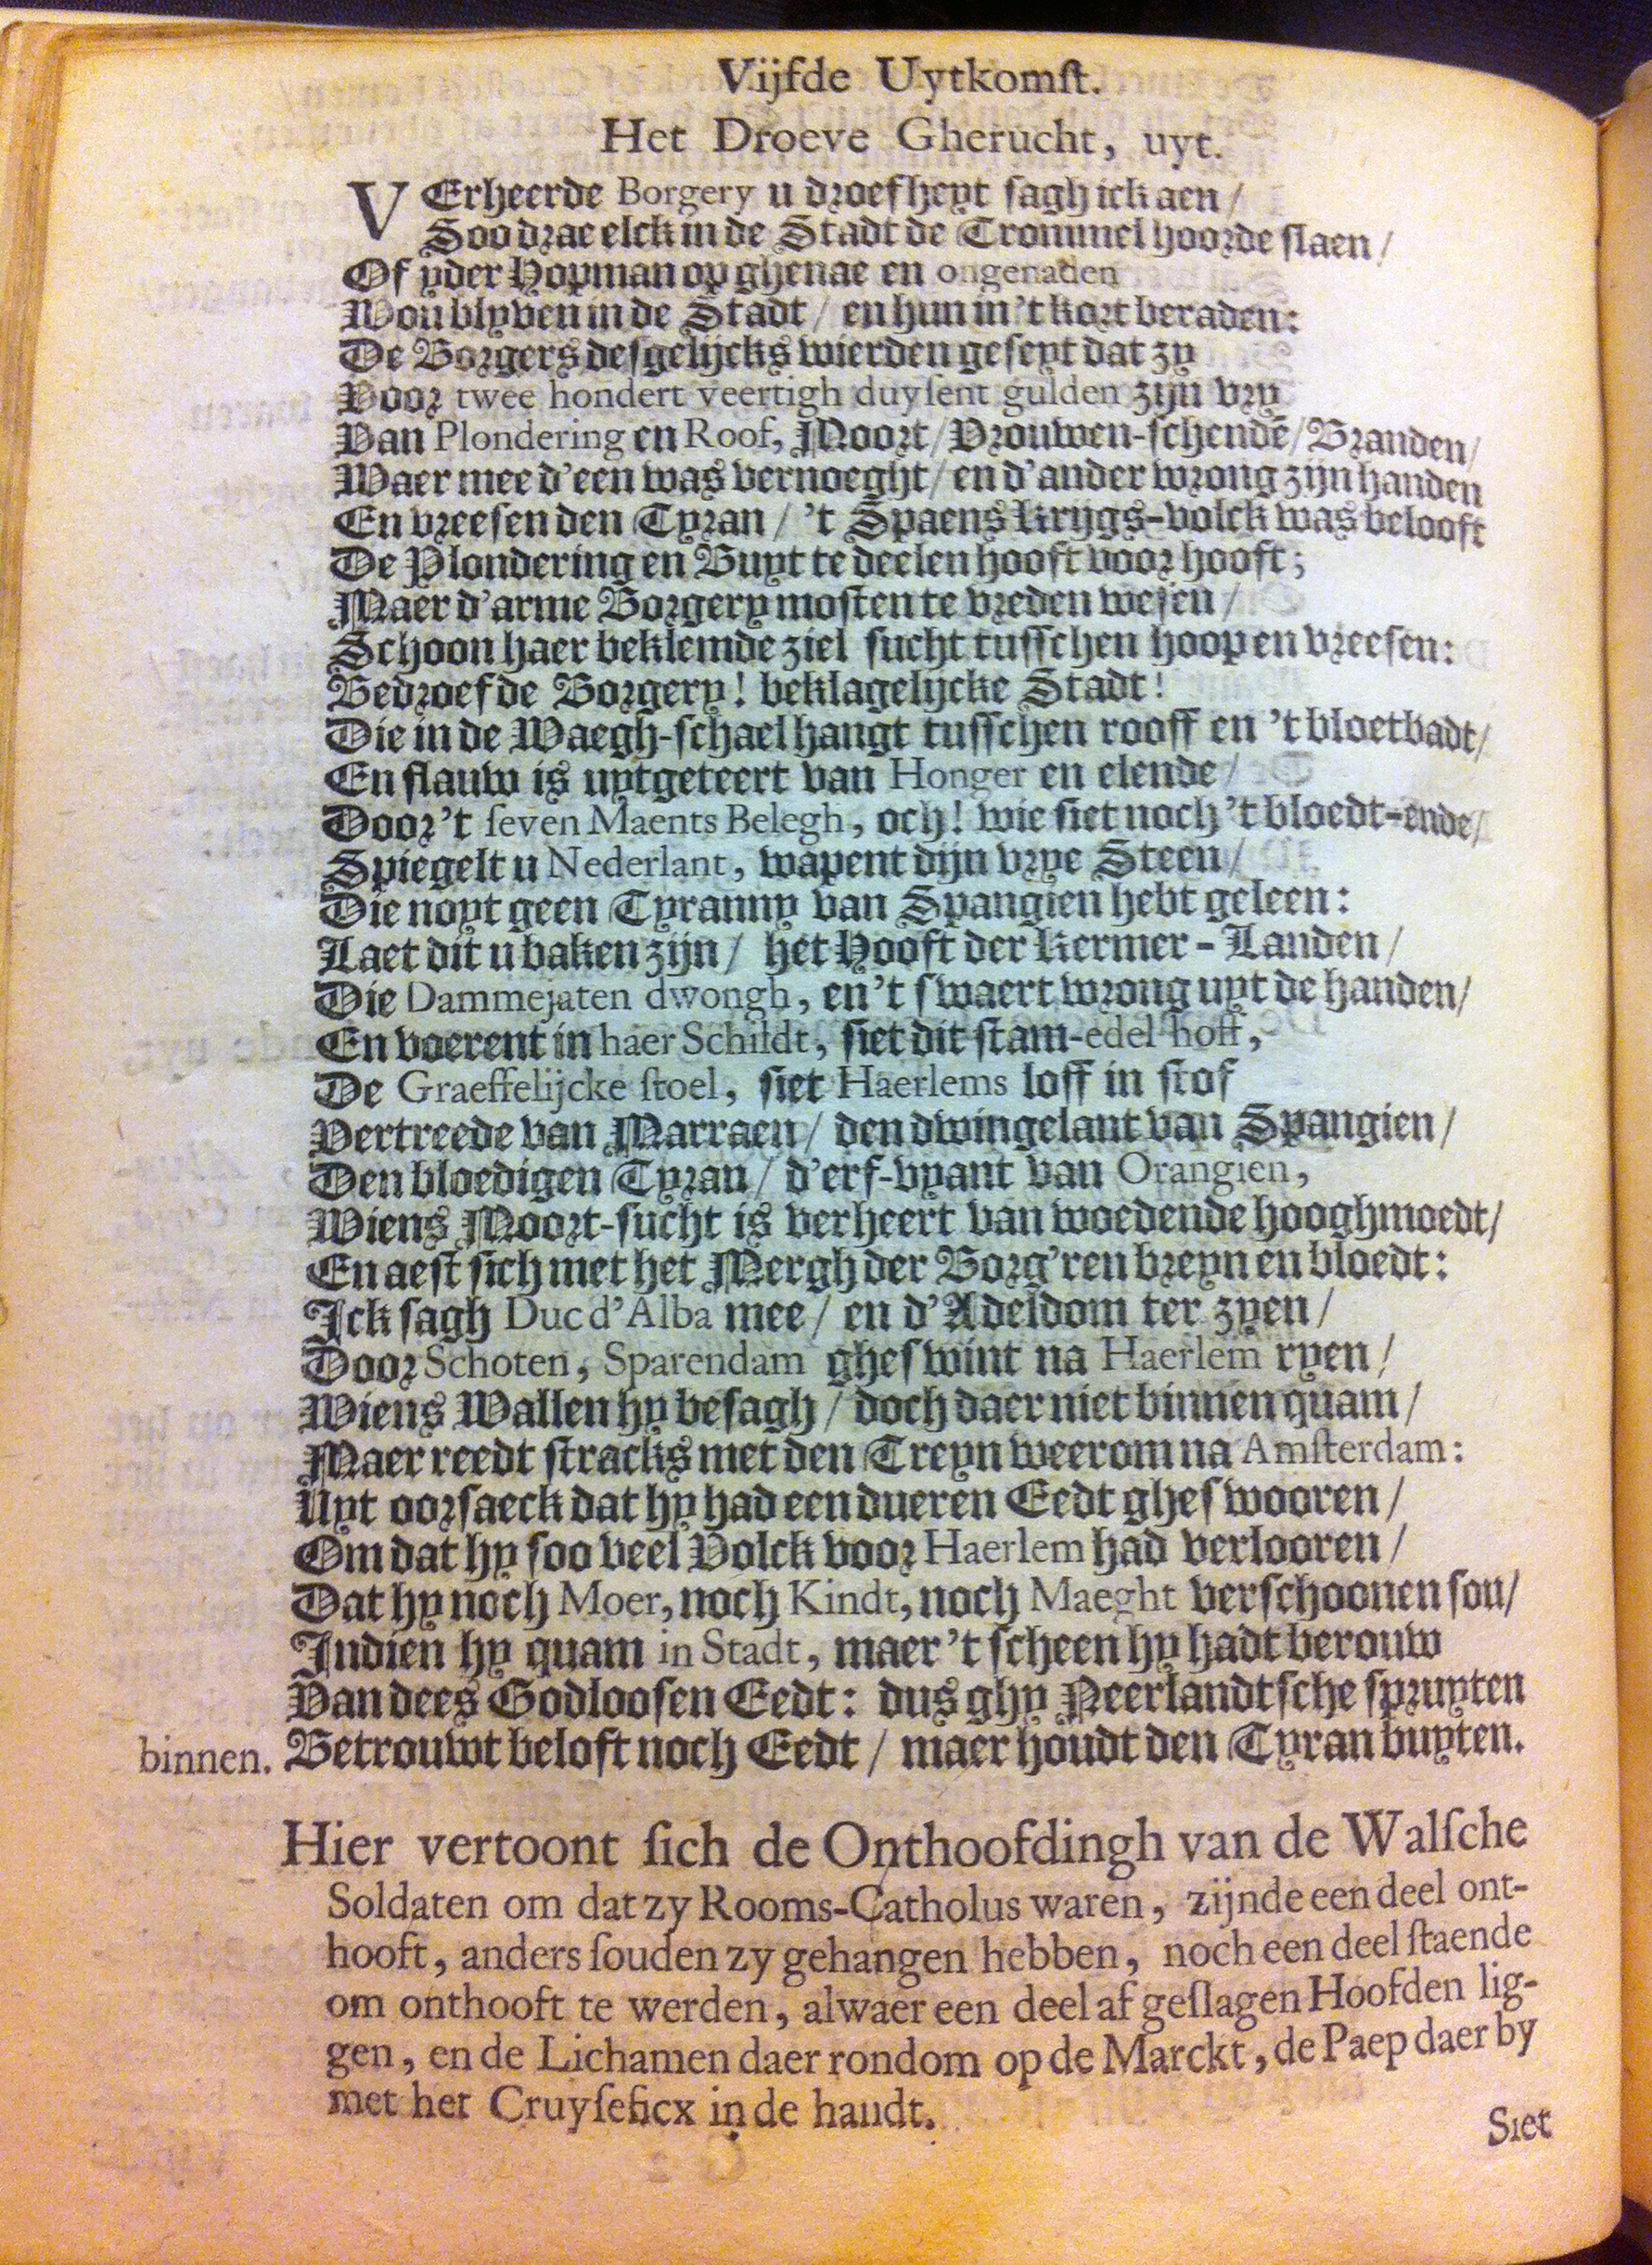 Vijfde Uytkomſt.
Het Droeve Gherucht, uyt.
VErheerde Borgery u droefheyt ſagh ick aen /
Soo drae elck in de Stadt de Trommel hoorde ſlaen /
Of yder Hopman op ghenae en ongenaden
Wou blyven in de Stadt / en hun in 't kort beraden:
De Borgers deſgelijcks wierden geſeyt dat zy
Voor twee hondert veertigh duyſent gulden zijn vry
Van Plondering en Roof, Moort / Vrouwen-ſchendē / Branden /
Waer mee d'een was vernoeght / en d'ander wrong zijn handen
En vreeſen den Tyran / 't Spaens Krijgs-volck was belooft
De Plondering en Buyt te deelen hooft voor hooft;
Maer d'arme Borgery moſten te vreden weſen /
Schoon haer beklemde ziel ſucht tuſſchen hoop en vreeſen:
Bedroefde Borgery! beklagelijcke Stadt!
Die in de Waegh-ſchael hangt tuſſchen rooff en 't bloetbadt /
En flauw is uytgeteert van Honger en elende /
Door 't ſeven Maents Belegh, och! wie ſiet noch 't bloedt-ende /
Spiegelt u Nederlant, wapent dijn vrye Steen /
Die noyt geen Tyranny van Spangien hebt geleen:
Laet dit u baken zijn / het Hooft der Kermer-Landen /
Die Dammejaten dwongh, en 't ſwaert wrong uyt de handen /
En voerent in haer Schildt, ſiet dit ſtam-edel hoff,
De Graeffelijcke ſtoel, ſiet Haerlems loff in ſtof
Vertreede van Marraen / den dwingelant van Spangien /
Den bloedigen Tyran / d'erf-vyant van Orangien,
Wiens Moort-ſucht is verheert van woedende hooghmoedt /
En aeſt ſich met het Mergh der Borg'ren breyn en bloedt:
Ick ſagh Duc d'Alba mee / en d'Adeldom ter zyen /
Door Schoten, Sparendam gheſwint na Haerlem ryen /
Wiens Wallen hy beſagh / doch daer niet binnen quam /
Maer reedt ſtracks met den Treyn weerom na Amſterdam:
Uyt oorſaeck dat hy had een dueren Eedt gheſwooren /
Om dat hy ſoo veel Volck voor Haerlem had verlooren /
Dat hy noch Moer, noch Kindt, noch Maeght verſchoonen ſou /
Indien hy quam in Stadt, maer 't ſcheen hy hadt berouw
Van dees Godlooſen Eedt: dus ghy Neerlandtſche ſpruyten
binnen. Betrouwt beloft noch Eedt / maer houdt den Tyran buyten.
Hier vertoont ſich de Onthoofdingh van de Walſche
Soldaten om dat zy Rooms-Catholus waren, zijnde een deel ont-
hooft, anders ſouden zy gehangen hebben, noch een deel ſtaende
om onthooft te werden, alwaer een deel af geſlagen Hoofden lig-
gen, en de Lichamen daer rondom op de Marckt, de Paep daer by
met het Cruyſeficx in de handt.
Siet